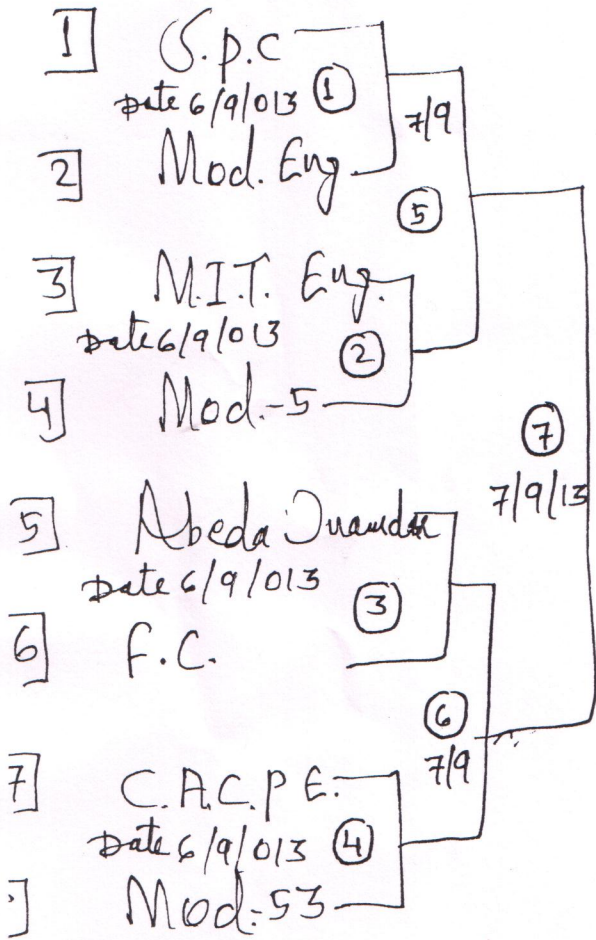 1 S.p.c
Date 6/9/013 1
7/9
2 Mod. Eng
5
3 M.I.T. Eng.
Date 6/9/013 2
4 Mod.-5
7
7/9/13
5 Abeda Inamdar
Date 6/9/013 3
6 F.C.
6
7/9
7 C.A.C.P E.
Date 6/9/013 4
Mod-53